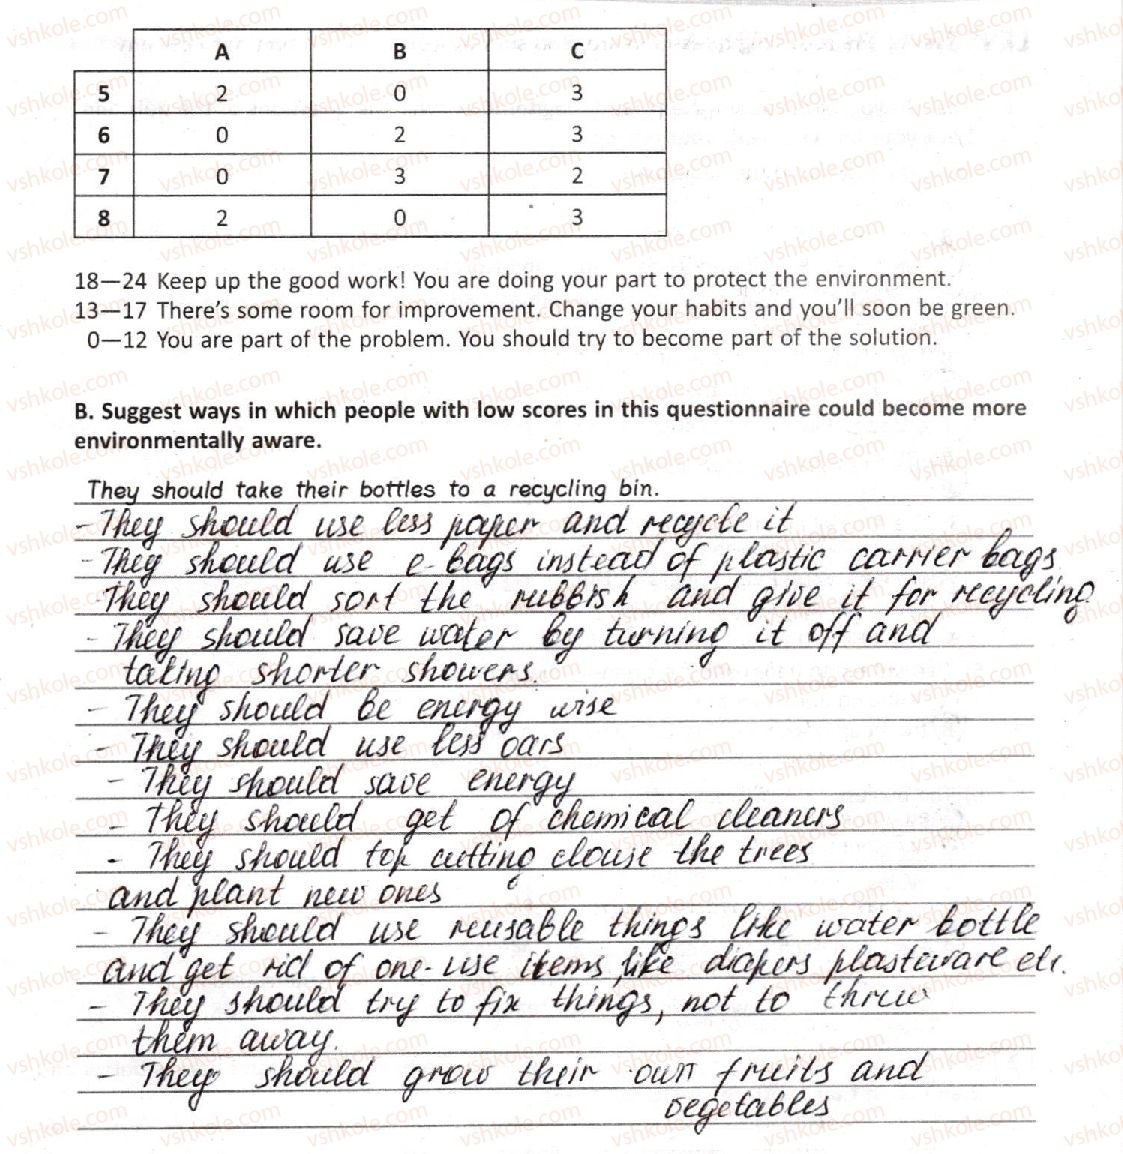 A B C
5 2 0 3
6 0 2 3
7 0 3 2
8 2 0 3
18—24 Keep up the good work! You are doing your part to protect the environment.
13—17 There's some room for improvement. Change your habits and you'll soon be green.
0—12 You are part of the problem. You should try to become part of the solution.
B. Suggest ways in which people with low scores in this questionnaire could become more
environmentally aware.
They should take their bottles to a recycling bin.
- They should use less paper and recycle it
- They should use e-bags instead of plastic carrier bags.
- They should sort the rubbish and give it for recycling
- They should save water by turning it off and
taking shorter showers.
- They should be energy wise
- They should use less cars
- They should save energy
- They should get of chemical cleaners
- They should top cutting clouse the trees
and plant new ones
- They should use reusable things like water bottle
and get rid of one-use items like diapers plasteware etc.
- They should try to fix things, not to threw
them away.
- They should grow their own fruits and
vegetables
vshkole.com